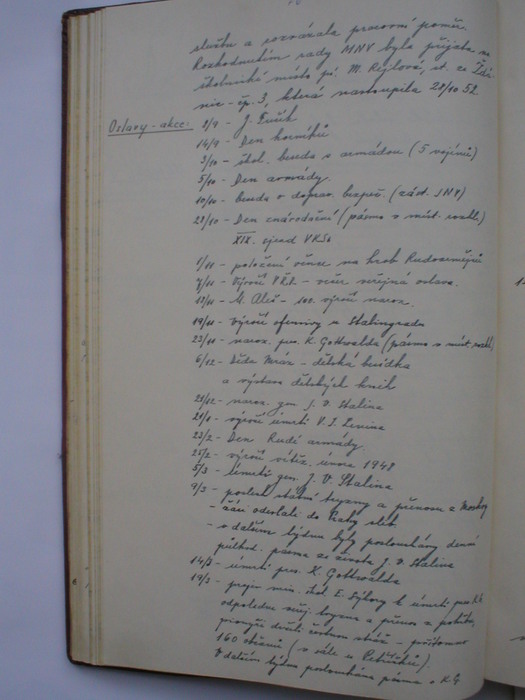 službu a rozvázala pracovní poměr.
Rozhodnutím rady MNV byla přijata na
školnické místo pí. M. Rejlová, ze Ždí-
nic - čp. 3, která nastoupila 28/10 52
Oslavy - akce: 8/9 - J. Fučík
14/9 - Den horníků
3/10 - škol. beseda s armádou (5 vojínů)
5/10 - Den armády.
10/10 - beseda o doprav. bezpeč. (zást. JNV)
28/10 - Den znárodnění (pásmo v míst. rozhl.)
XIX. sjezd VKSb
1/11 - položení věnce na hrob Rudoarmějců
7/11 - Výročí VŘR. - večer veřejná oslava.
18/11 - M. Aleš - 100. výročí naroz.
19/11 - Výročí ofensivy u Stalingradu
23/11 - naroz. pres. K. Gottwalda (pásmo v míst. rozhl.)
6/12 - Děda Mráz - dětská besídka
a výstava dětských knih
21/12 - naroz. gen. J. V. Stalina
21/1 - výročí úmrtí V. I. Lenina
23/2 - Den Rudé armády
25/2 - výročí vítěz. února 1948
5/3 - úmrtí gen. J. V. Stalina
9/3 - poslech státní tryzny a přenosu z Moskvy
- žáci odeslali do Prahy
- v dalším týdnu byly poslouchány denní
půlhod. pásma ze života J. V. Stalina
14/3 - úmrtí pres. K. Gottwalda
19/3 - projev min. škol. E. Sýkory k úmrtí pres. K. G.
odpoledne veřej. tryzna a přenos z pohřbu,
pionýři drželi čestnou stráž - přítomno
160 občanů (v sále u
V dalším týdnu poslouchána pásma o K. G.